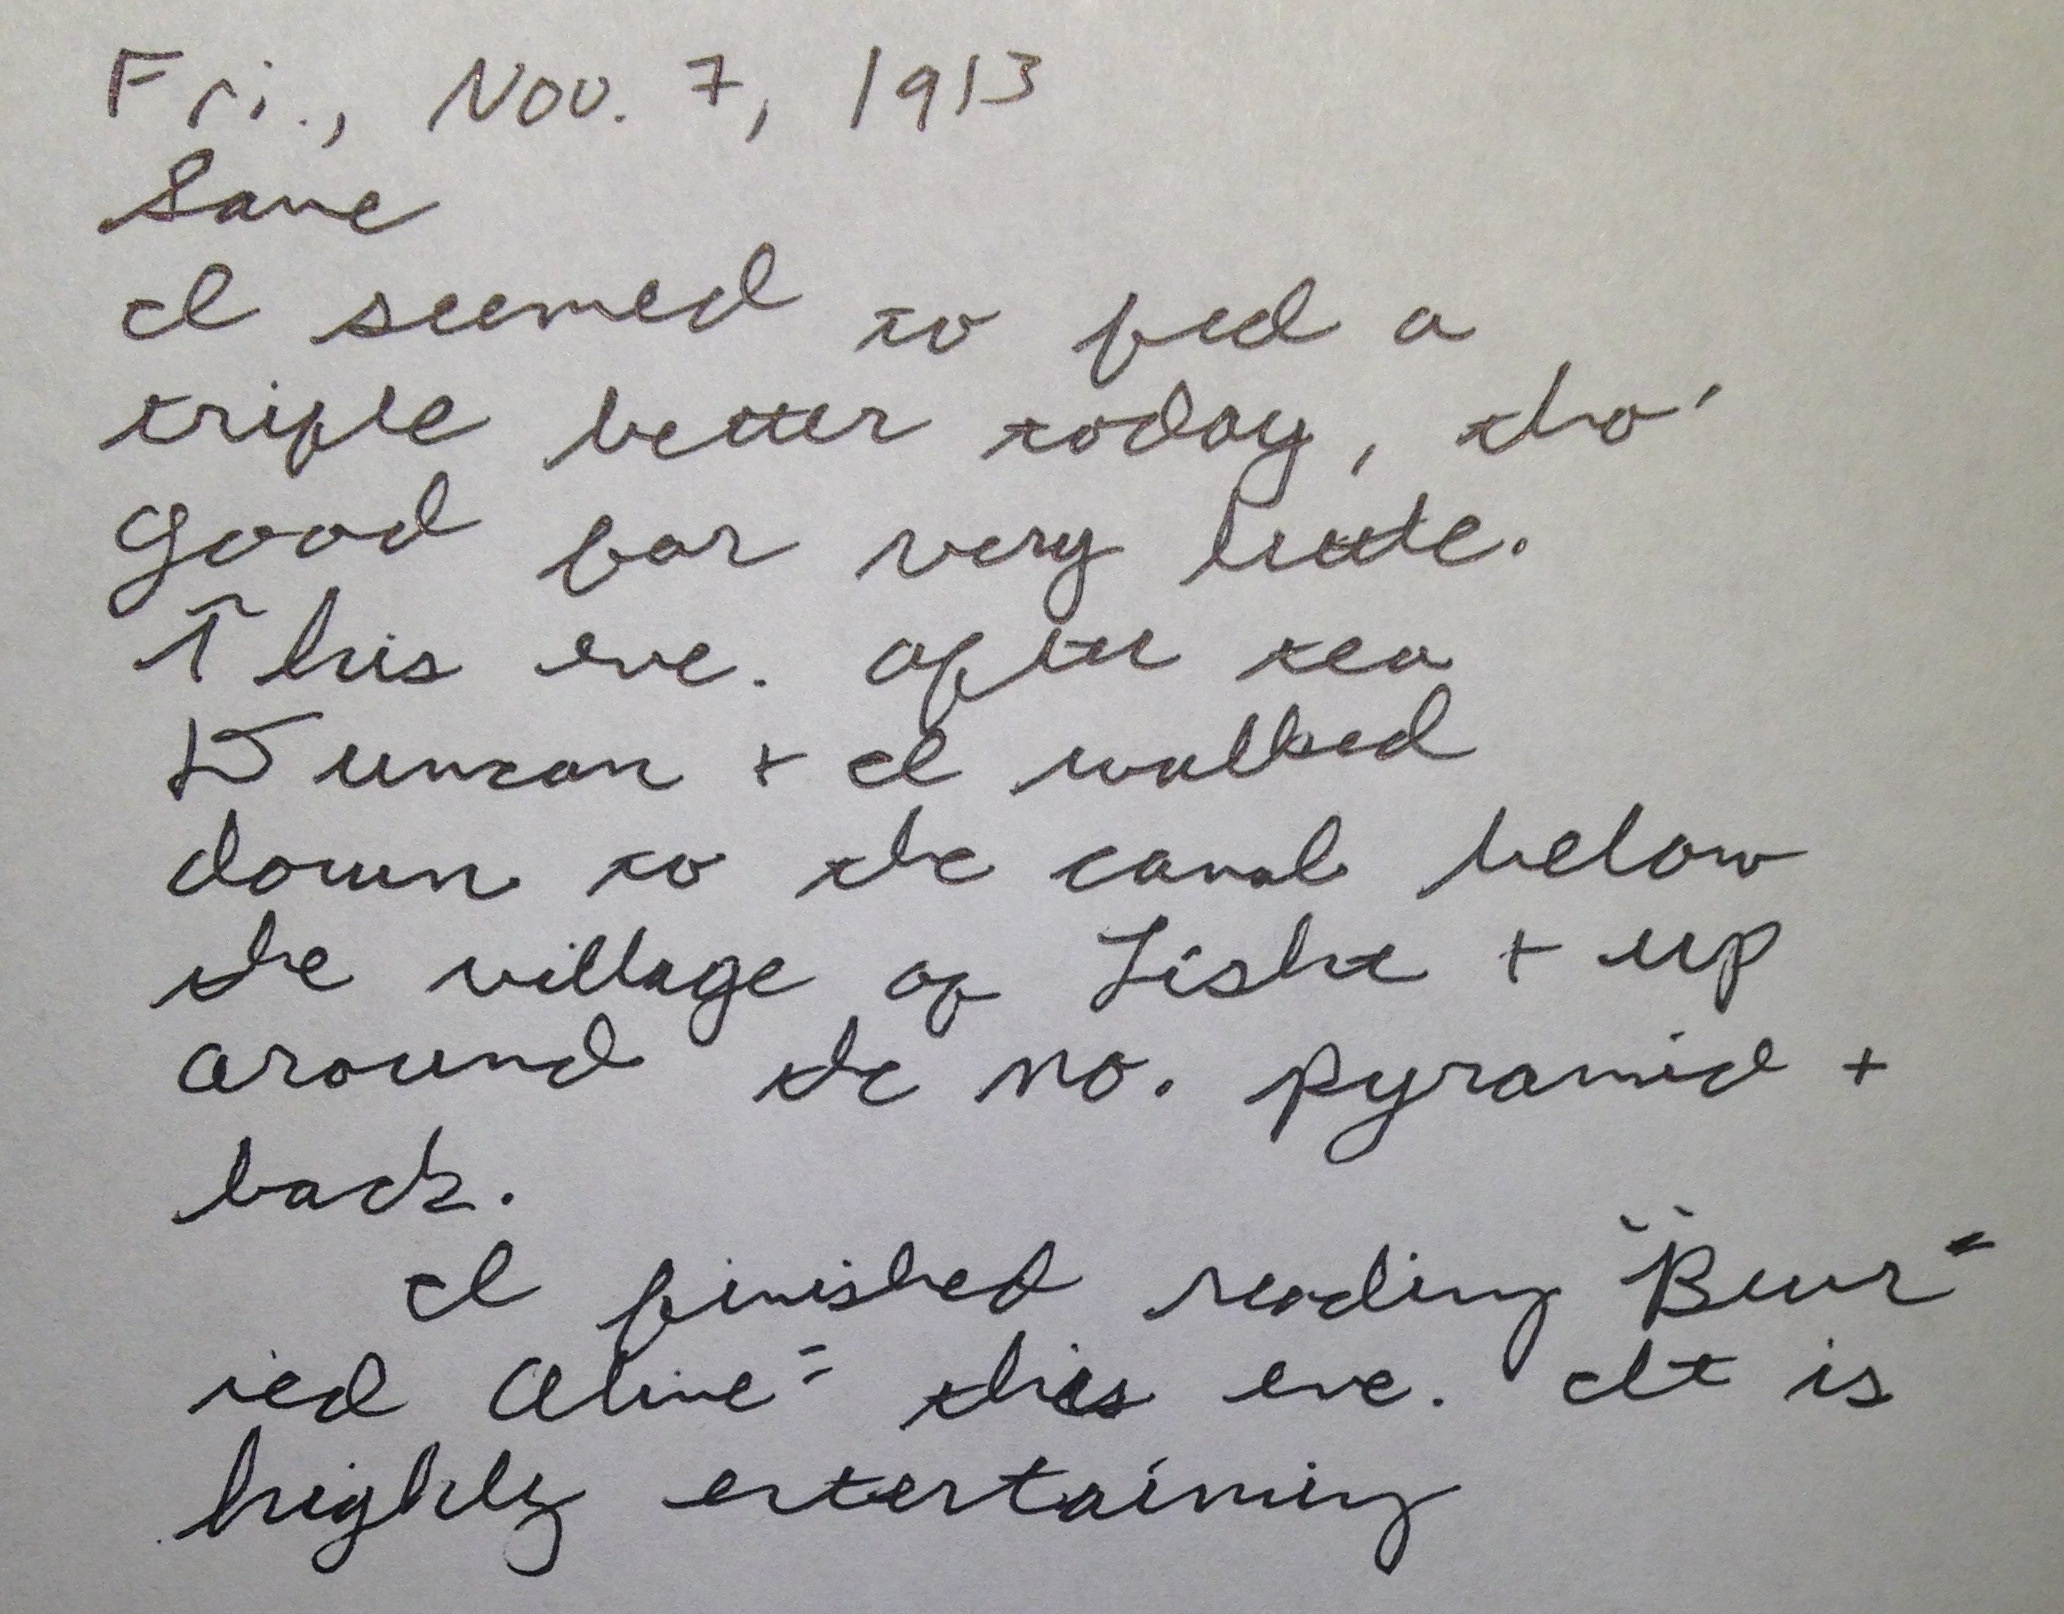 Fri., Nov. 7, 1913
Same
I seemed to feel a
triple better today, tho'
good for very little.
This eve. after tea
Duncan + I walked
down to the canal below
the village of Lisht + up
around the no. pyramid +
back.
I finished reading "Bur=
ied Alive" this eve. It is
highly entertaining